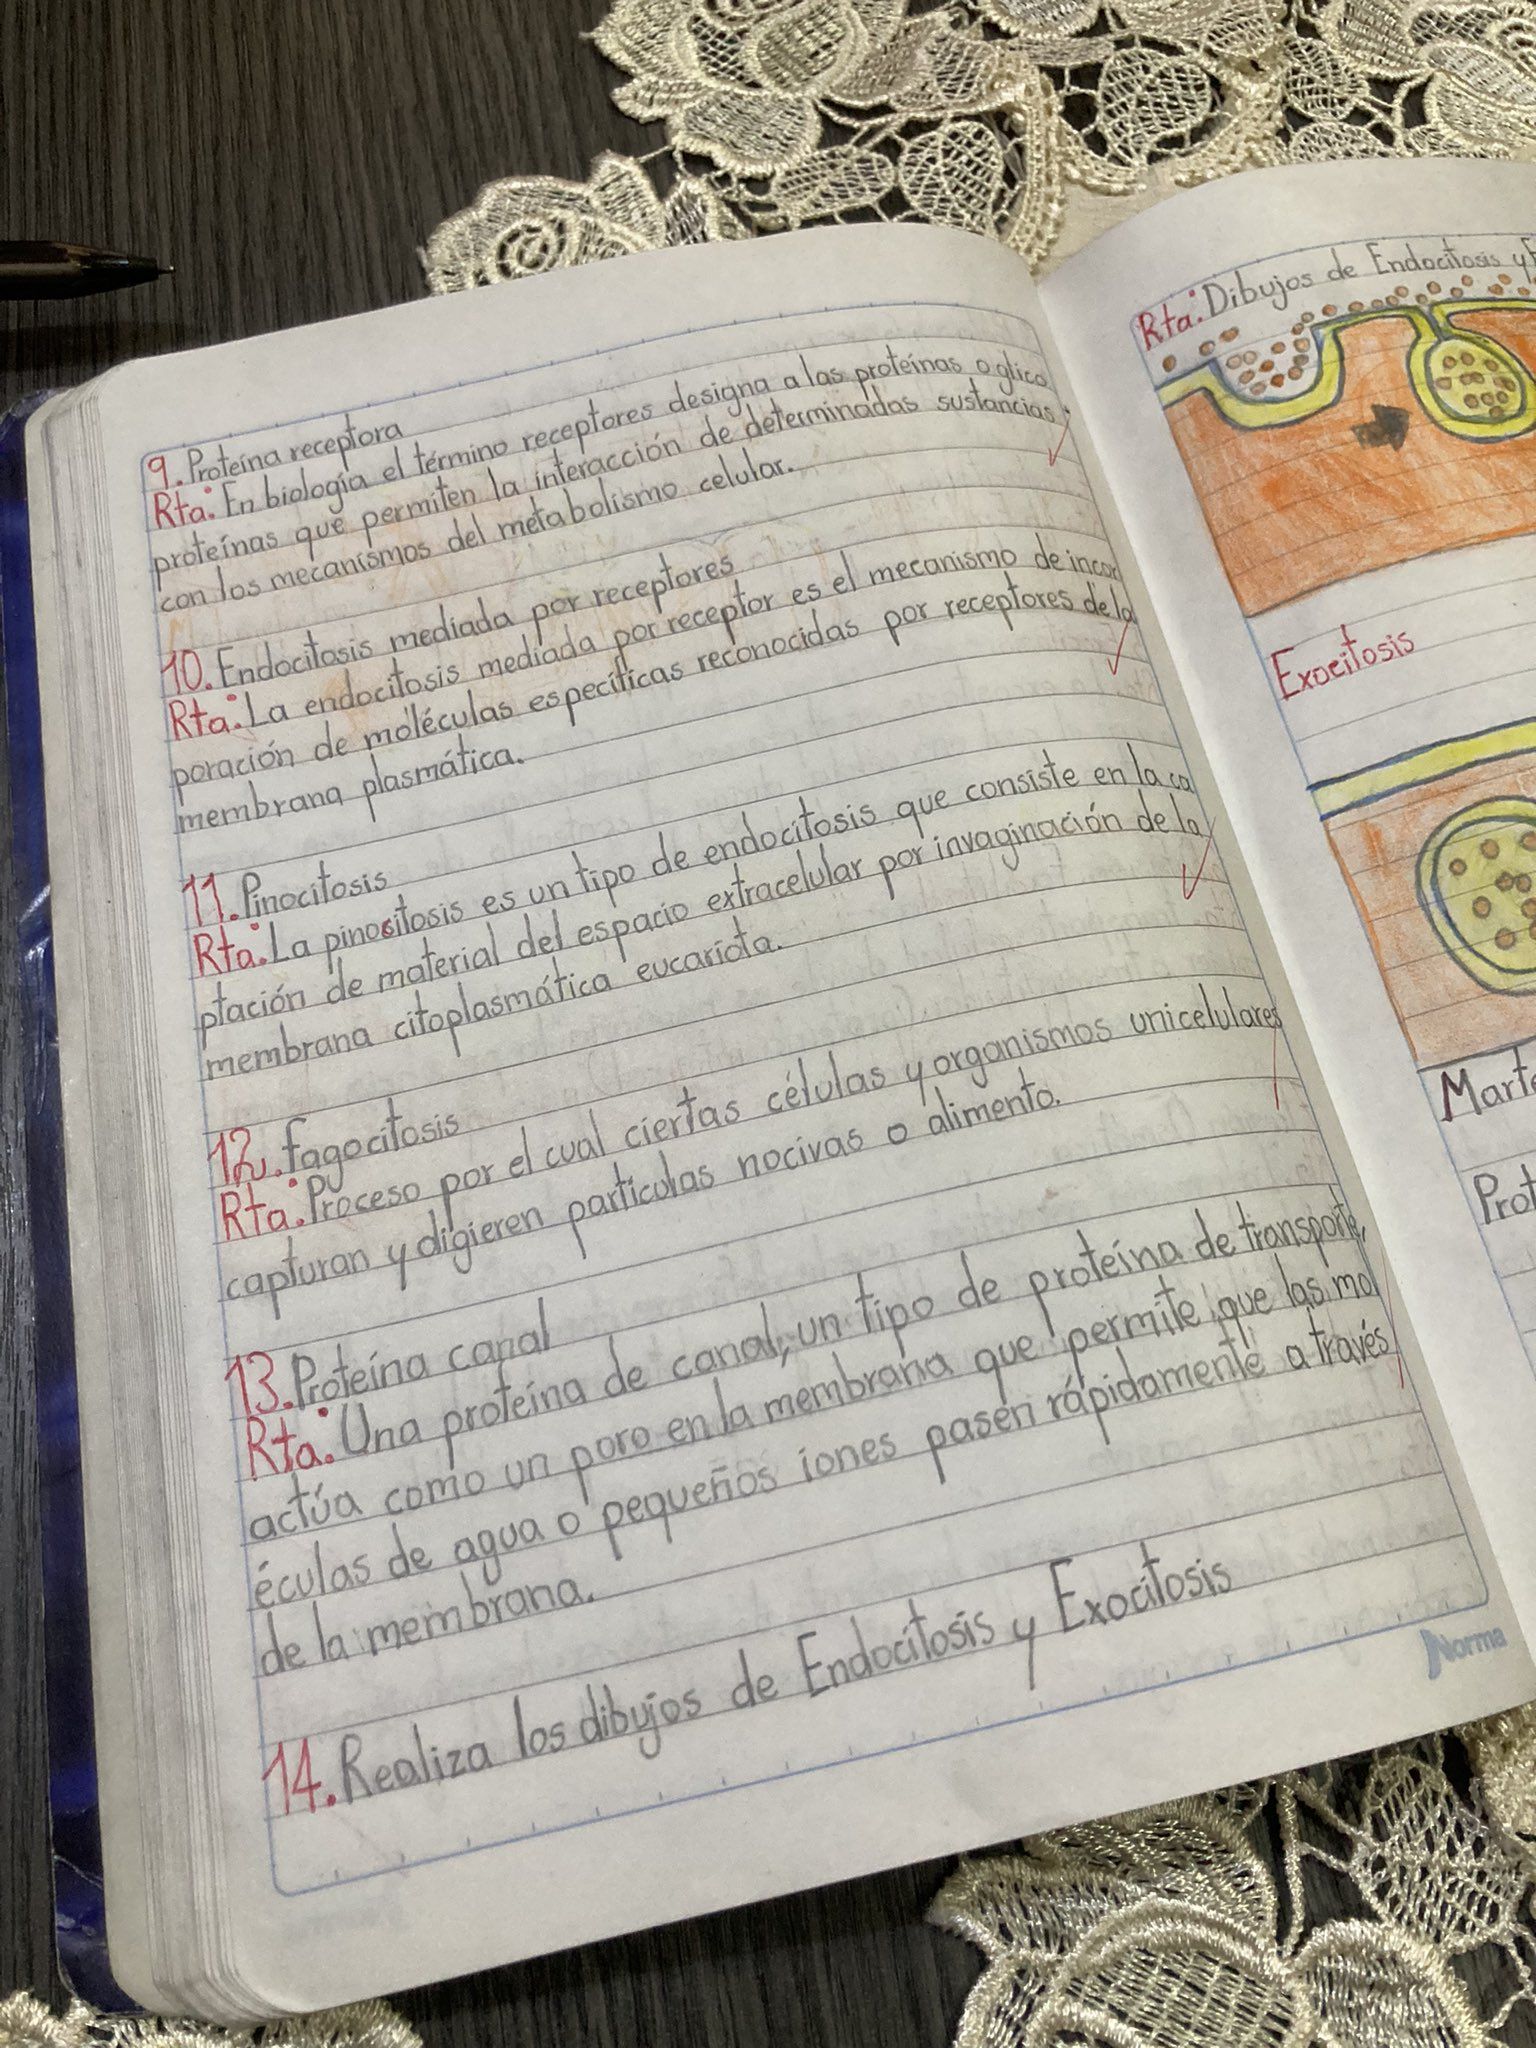 9. Proteína receptora
Rta: En biología el término receptores designa a las proteínas o glico
proteínas que permiten la interacción de determinadas sustancias
con los mecanismos del metabolismo celular.
10. Endocitosis mediada por receptores
Rta: La endocitosis mediada por receptor es el mecanismo de incor
poración de moléculas específicas reconocidas por receptores de la
membrana plasmática.
11. Pinocitosis
Rta: La pinocitosis es un tipo de endocitosis que consiste en la ca
ptación de material del espacio extracelular por invaginación de la
membrana citoplasmática eucariota.
12. Fagocitosis
Rta: Proceso por el cual ciertas células y organismos unicelulares
capturan y digieren partículas nocivas o alimento.
13. Proteína canal
Rta: Una proteína de canal, un tipo de proteína de transporte,
actúa como un poro en la membrana que permite que las mol
éculas de agua o pequeños iones pasen rápidamente a través
de la membrana.
14. Realiza los dibujos de Endocitosis y Exocitosis
Norma
Rta: Dibujos de Endocitosis y E
Exocitosis
Marte
Prot